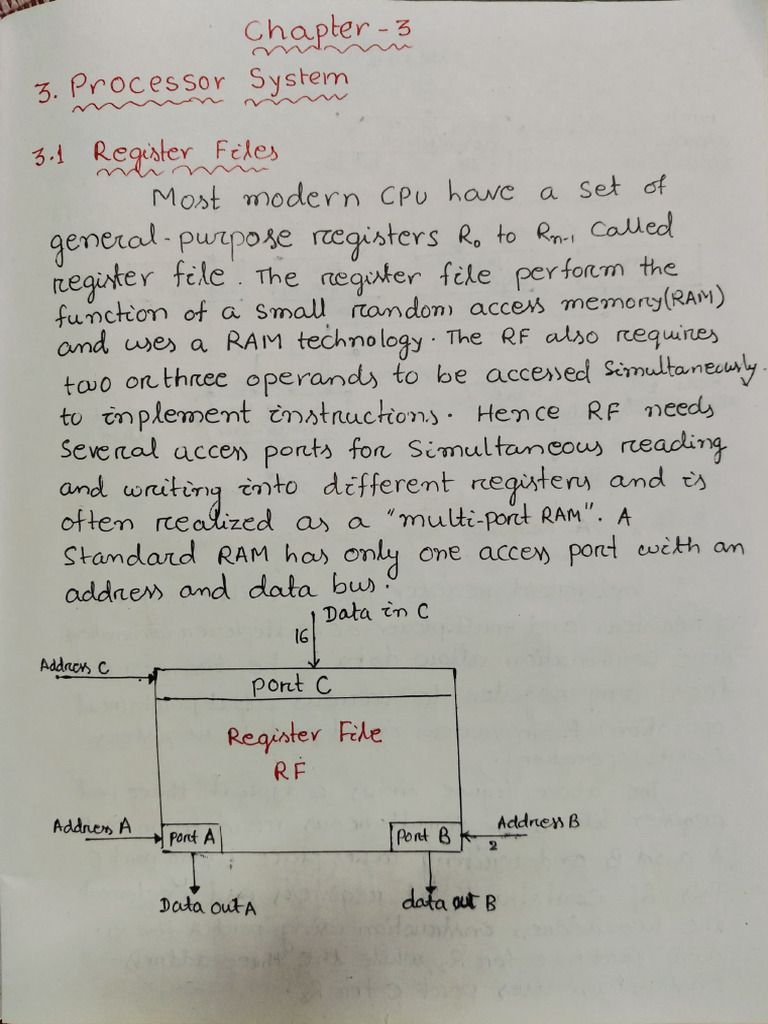 Chapter - 3
3. Processor System
3.1 Register Files
Most modern CPU have a set of
general-purpose registers R₀ to Rn-1 called
register file. The register file perform the
function of a small random access memory(RAM)
and uses a RAM technology. The RF also requires
two or three operands to be accessed simultaneously
to inplement instructions. Hence RF needs
several access ports for simultaneous reading
and writing into different registers and is
often realized as a "multi-port RAM". A
Standard RAM has only one access port with an
address and data bus.
Data in C
16
Address C
port C
Register File
RF
Address A
port A
port B
Address B
2
Data out A
data out B